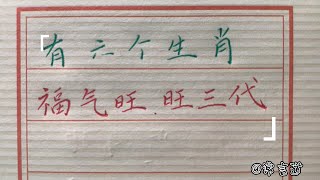 「有六个生肖
福气旺.旺三代」